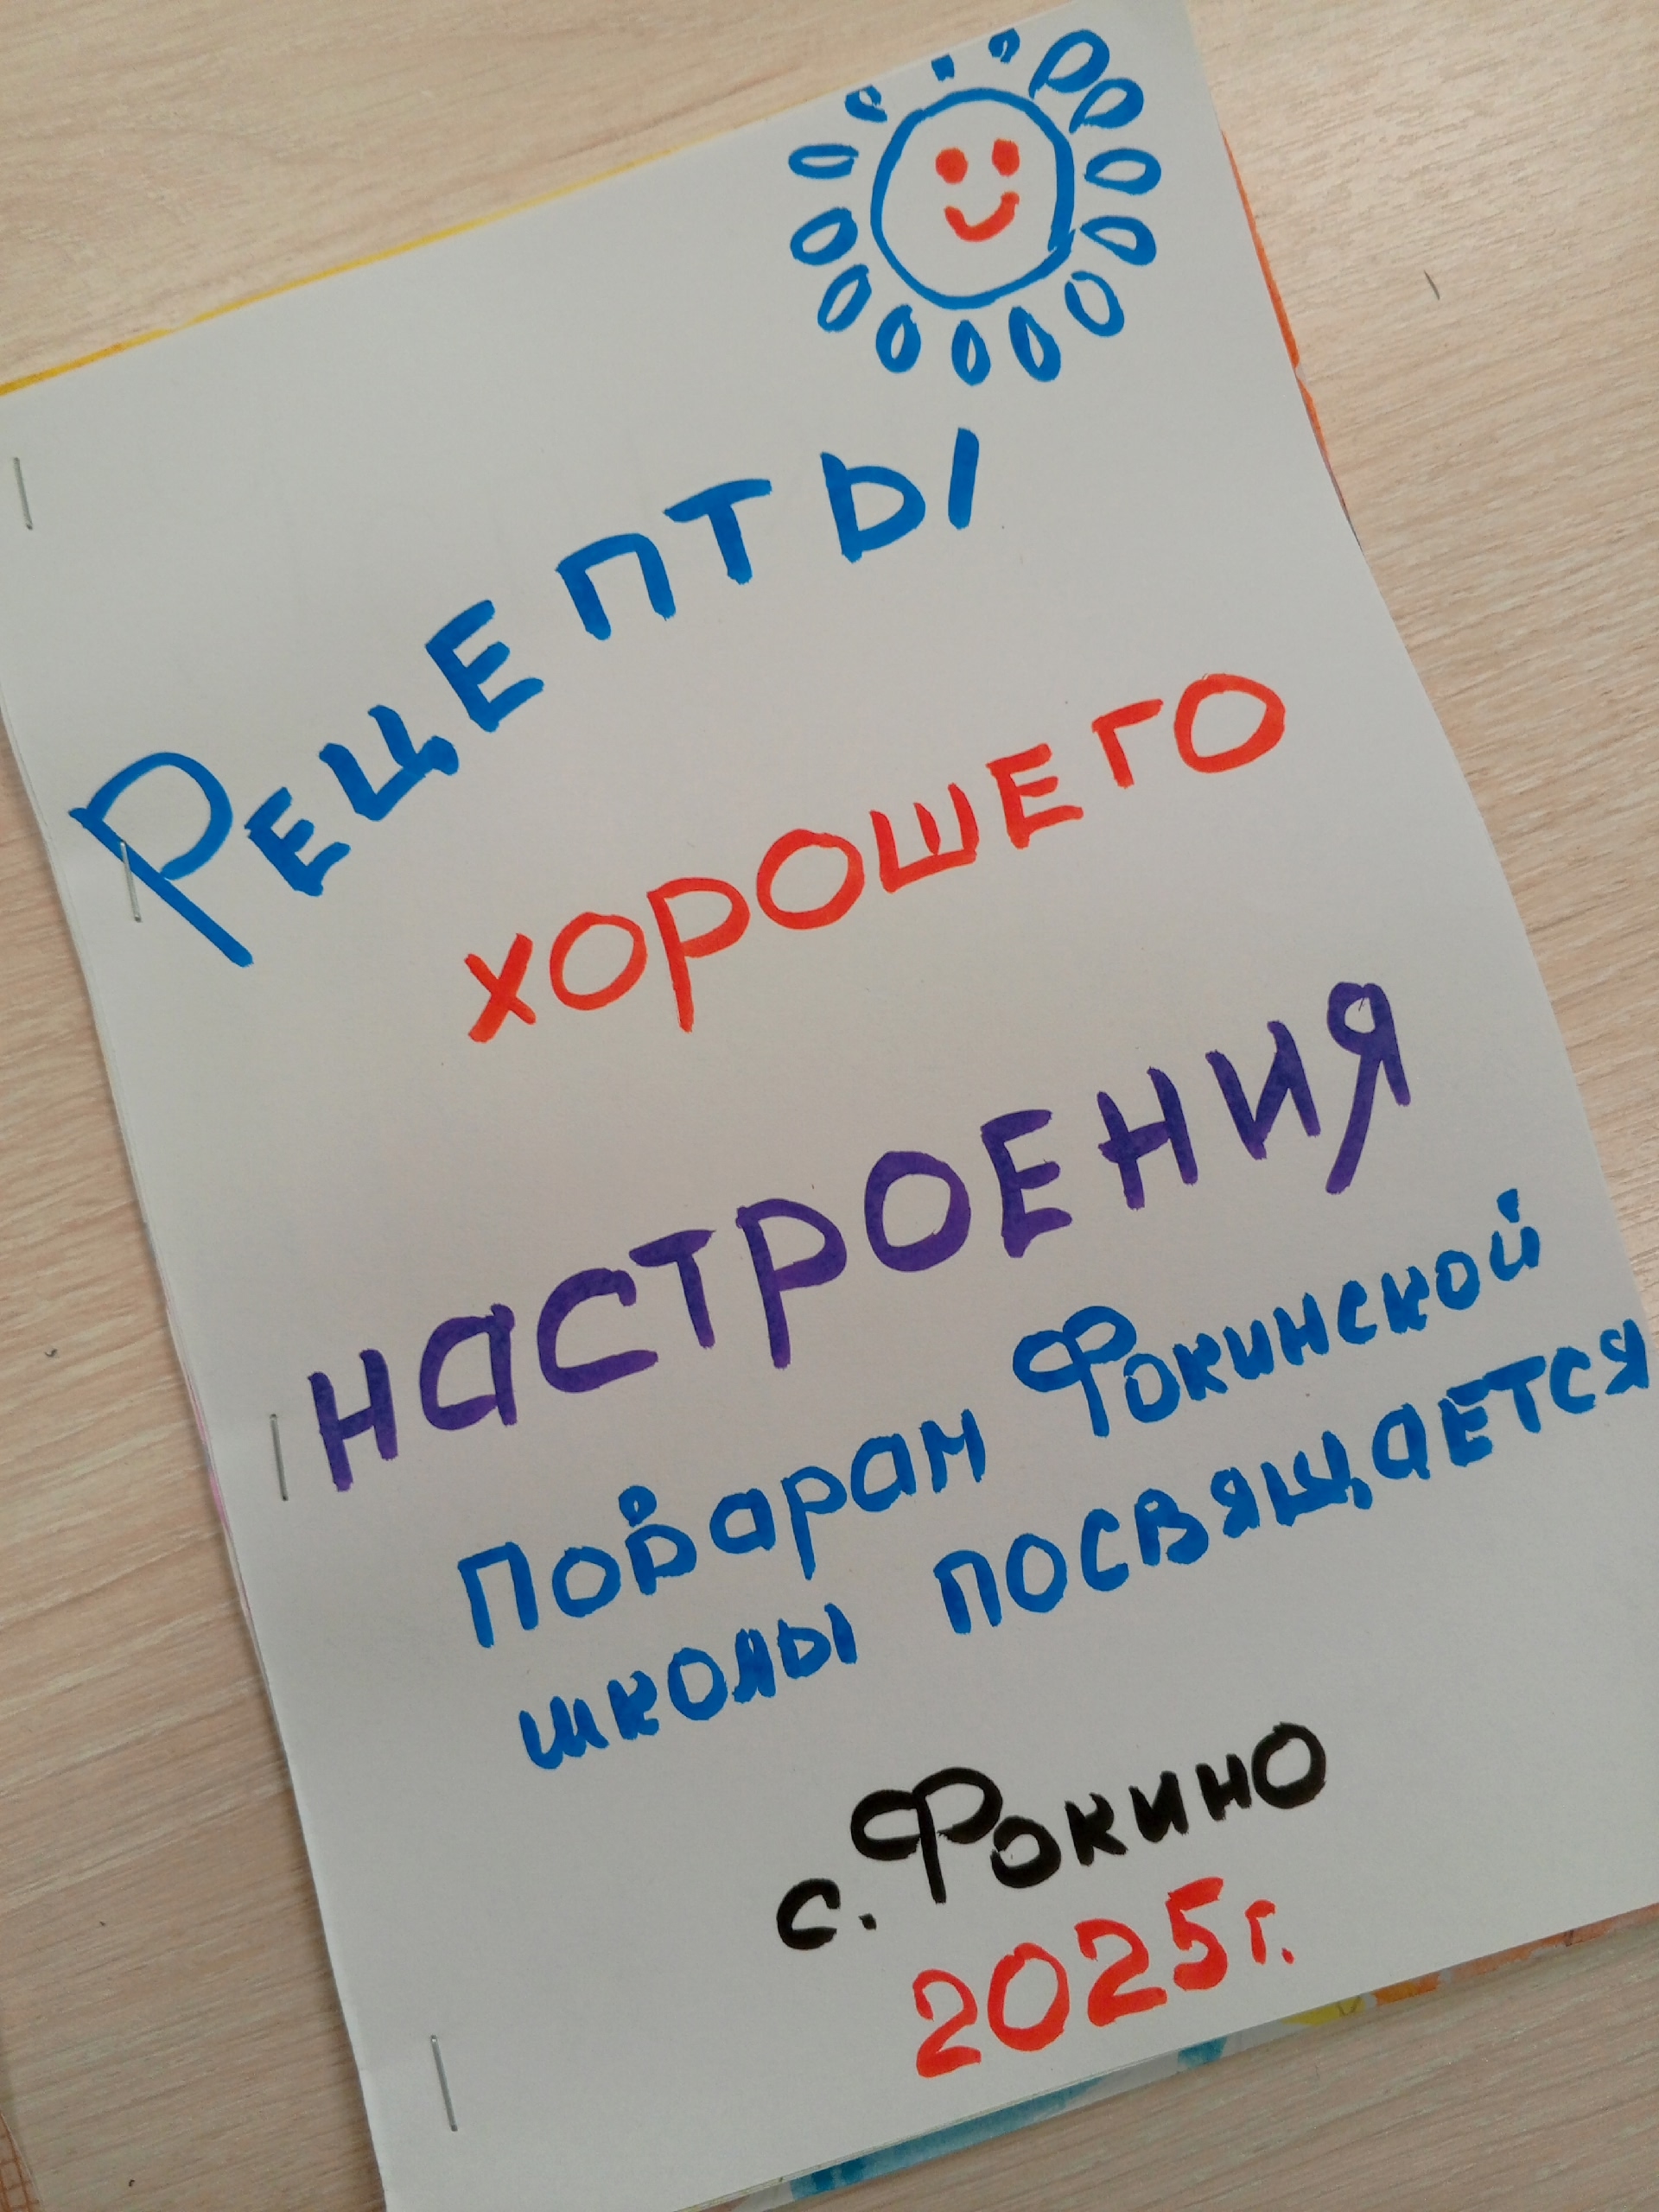 Рецепты
хорошего
настроения
Поварам Фокинской
школы посвящается
с. Фокино
2025г.